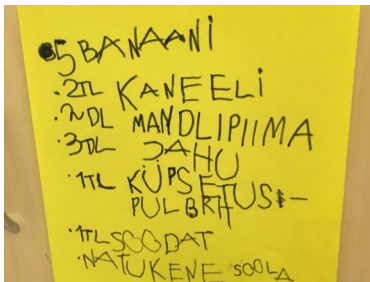 • 5 BANAANI
• 2TL KANEELI
• 2DL MANDLIPIIMA
• 3DL JAHU
• 1TL KÜPSETUS-
PULBRIT
• 1TL SOODAT
• NATUKENE SOOLA